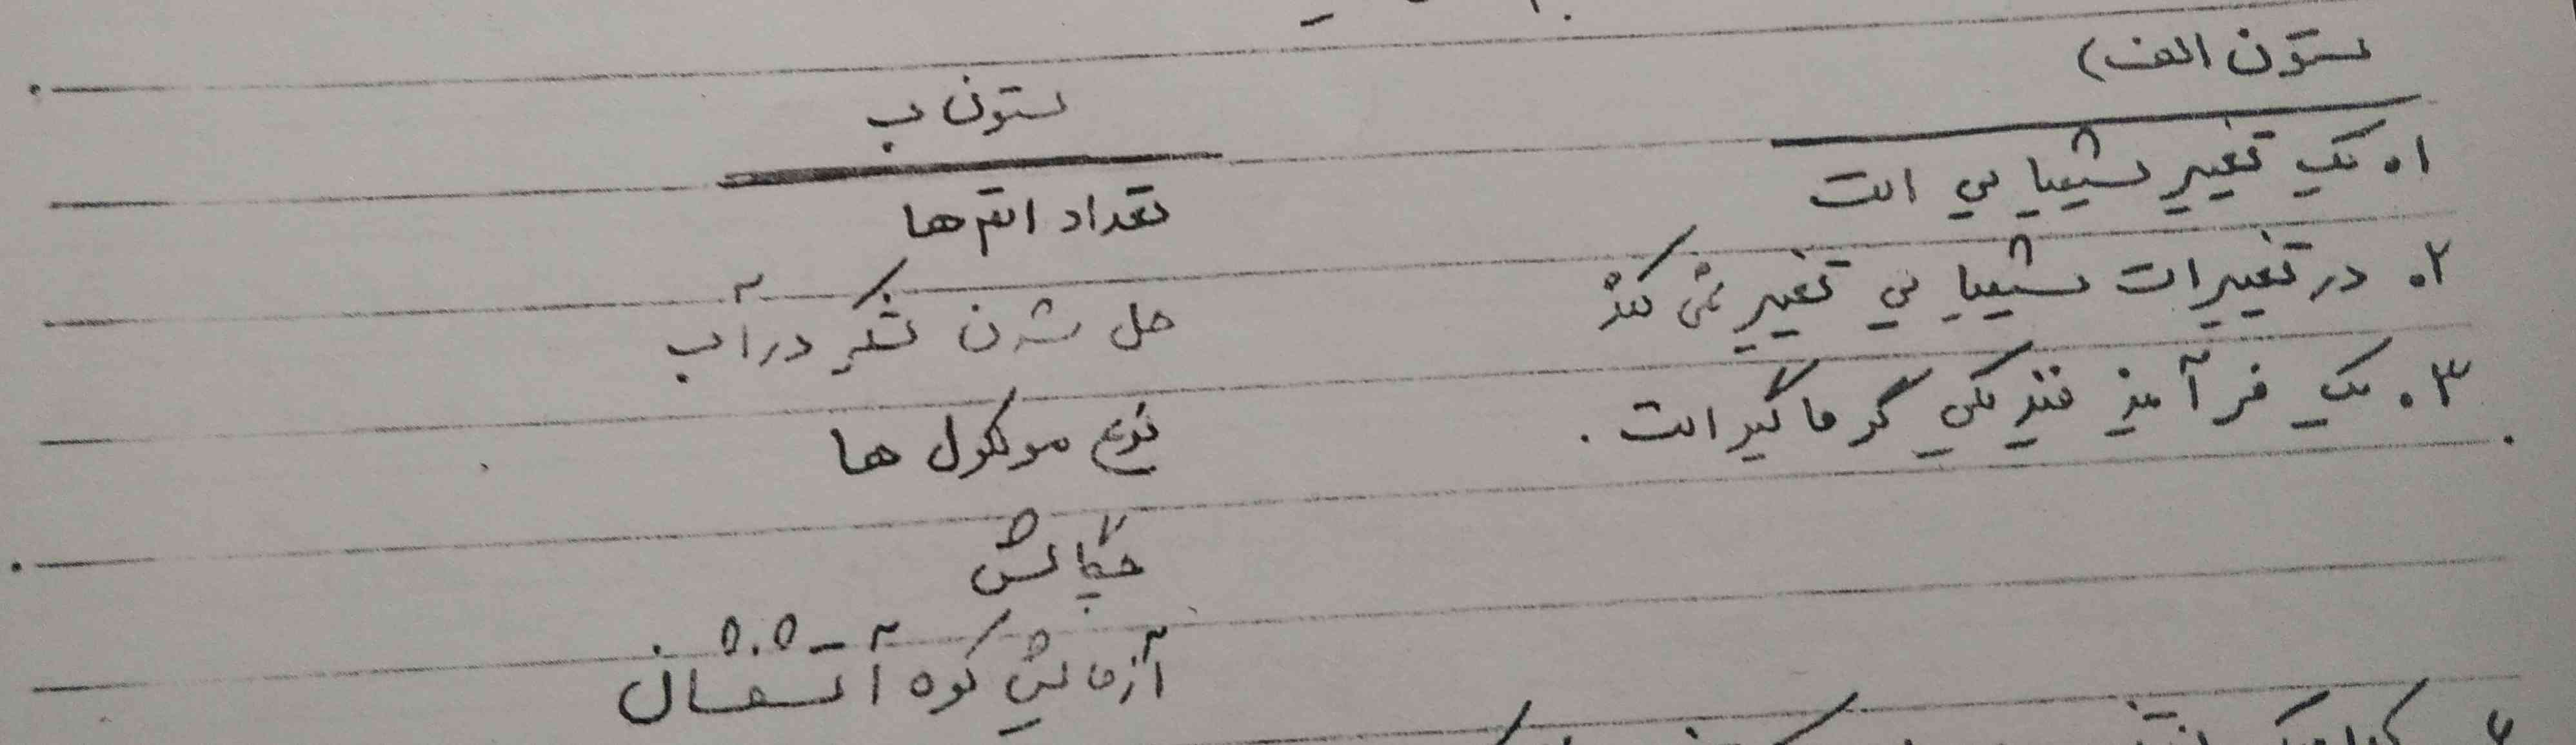 ستون الف)
۱. یک تغییر شیمیایی است
۲. در تغییرات شیمیایی تغییر نمی کند
۳. یک فرآیند فیزیکی گرماگیر است .
ستون ب
تعداد اتم ها
حل شدن شکر در آب
نوع مولکول ها
چگالش
آزمایش کوه آتشفشان